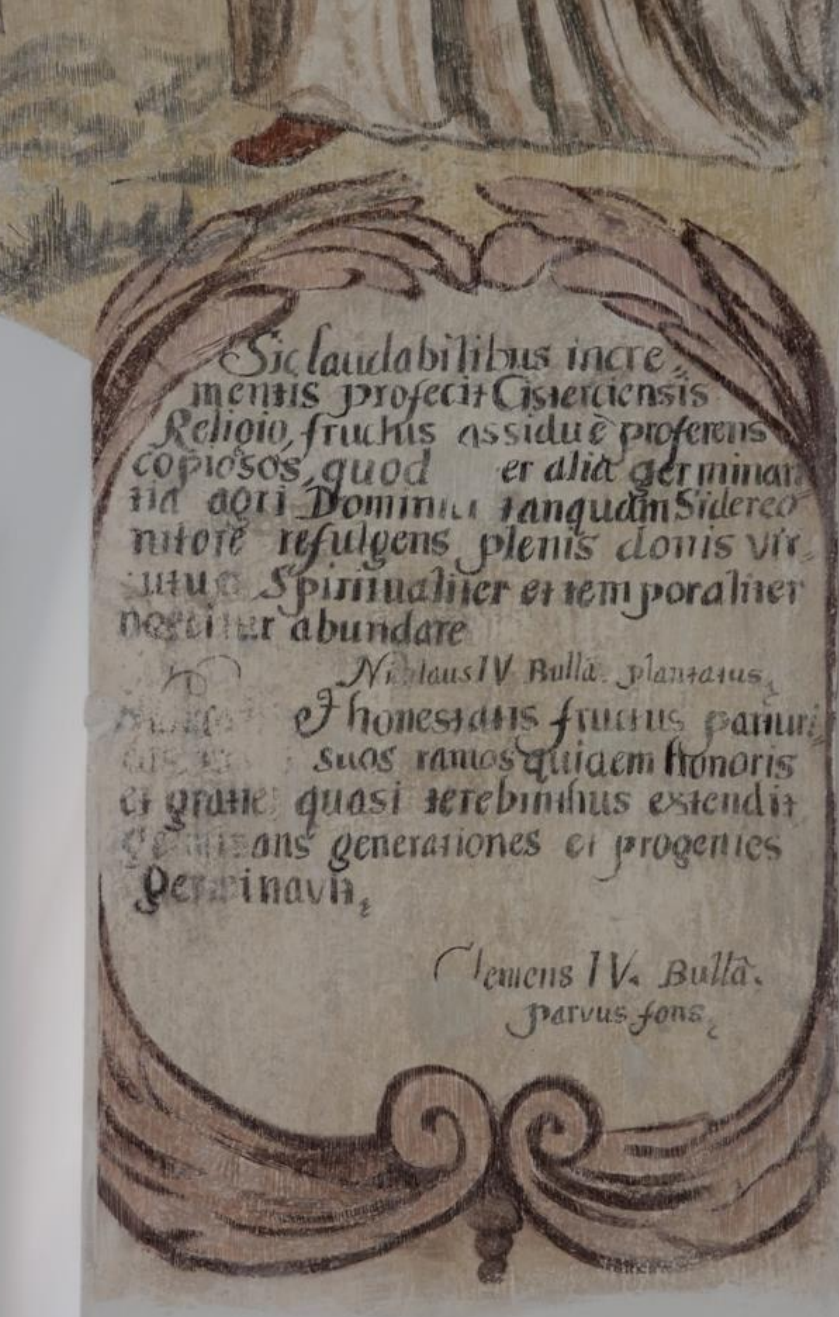 Sic laudabilibus incre„
mentis profecit Cisterciensis
Religio, fructus assiduè proferens
copiosos, quod er alia germinan
tia agri Dominici tanquam Sidereo
nitore refulgens plenis donis vir„
Spiritualiter et temporaliter
abundare
IV Bullâ. plantatus
et honestatis fructus parturi
suos ramos quidem Honoris
et gratie quasi terebinthus extendit
generationes et progenies
Clemens IV. Bullâ.
parvus fons